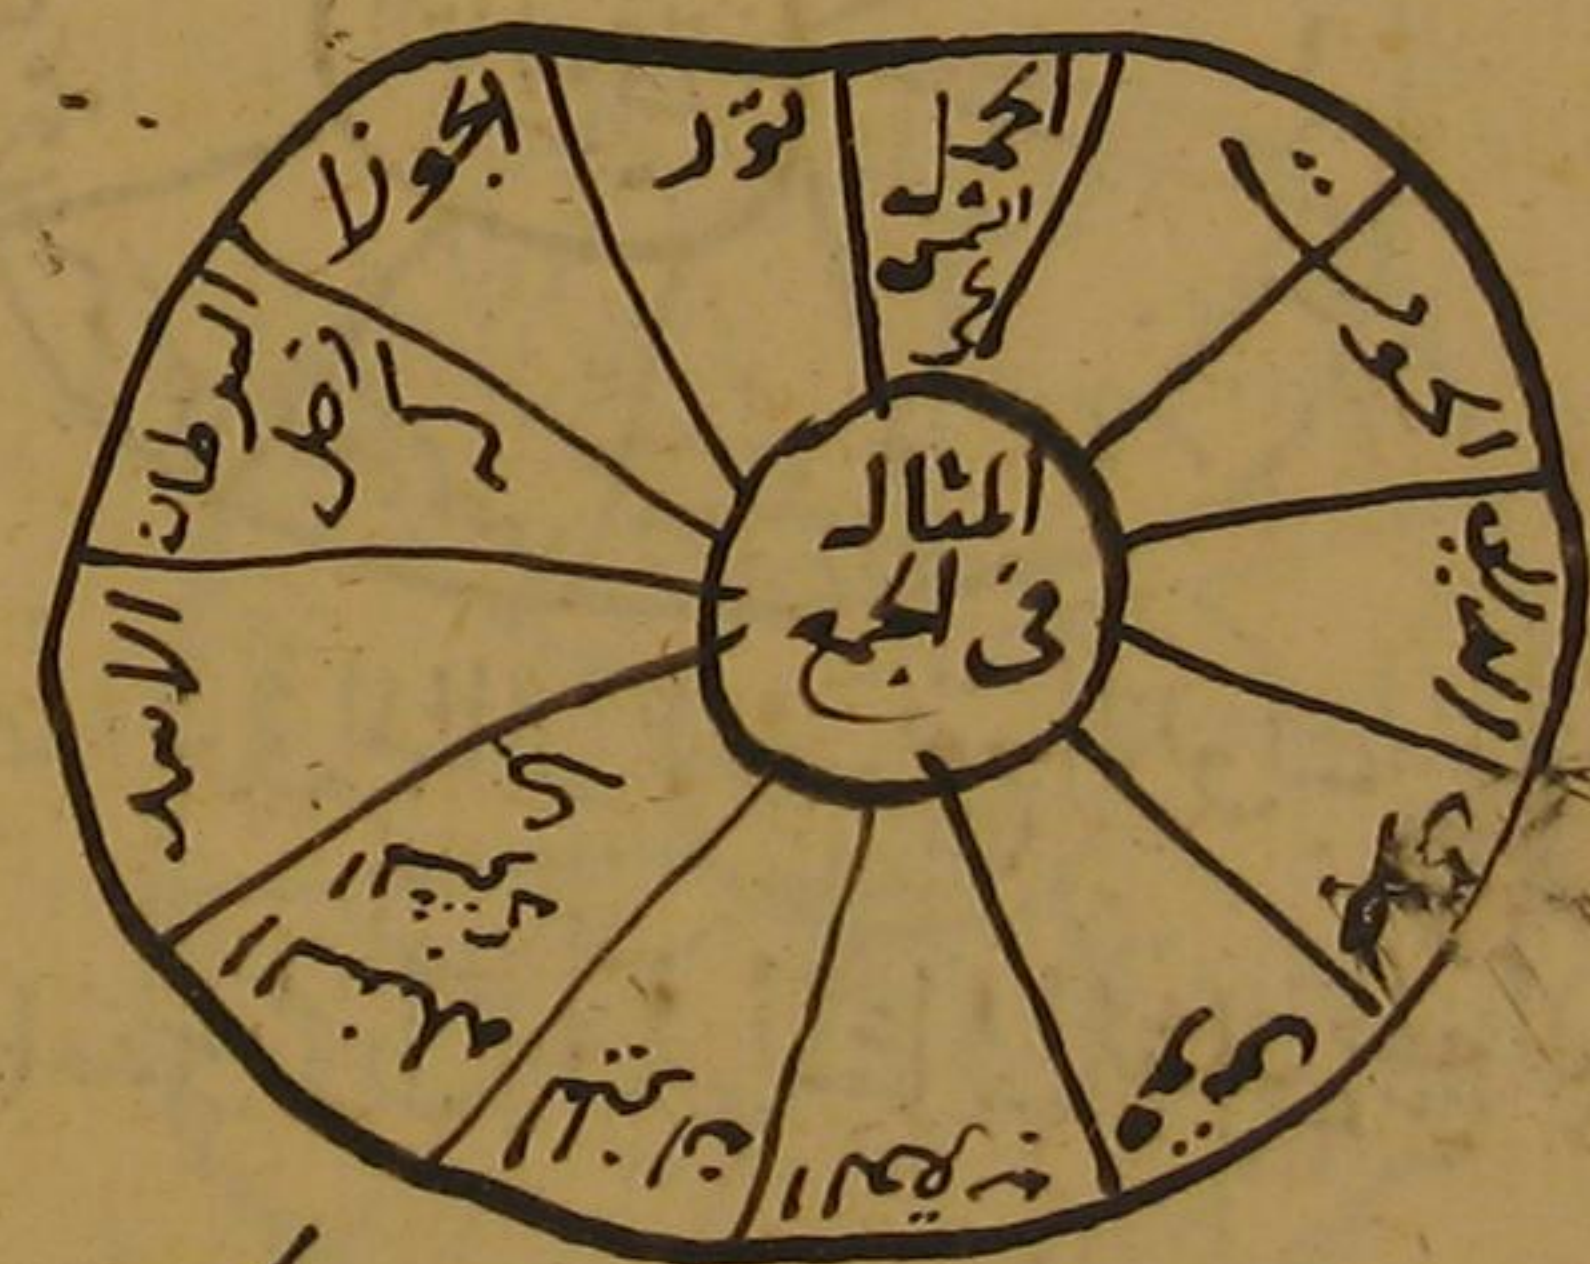 المثال
في الجمع
الحمل
الشمس
ثور
الجوزا
السرطان
زحل
الاسد
السنبله
المشتري
الميزان
العقرب
قوس
جدي
الحوت